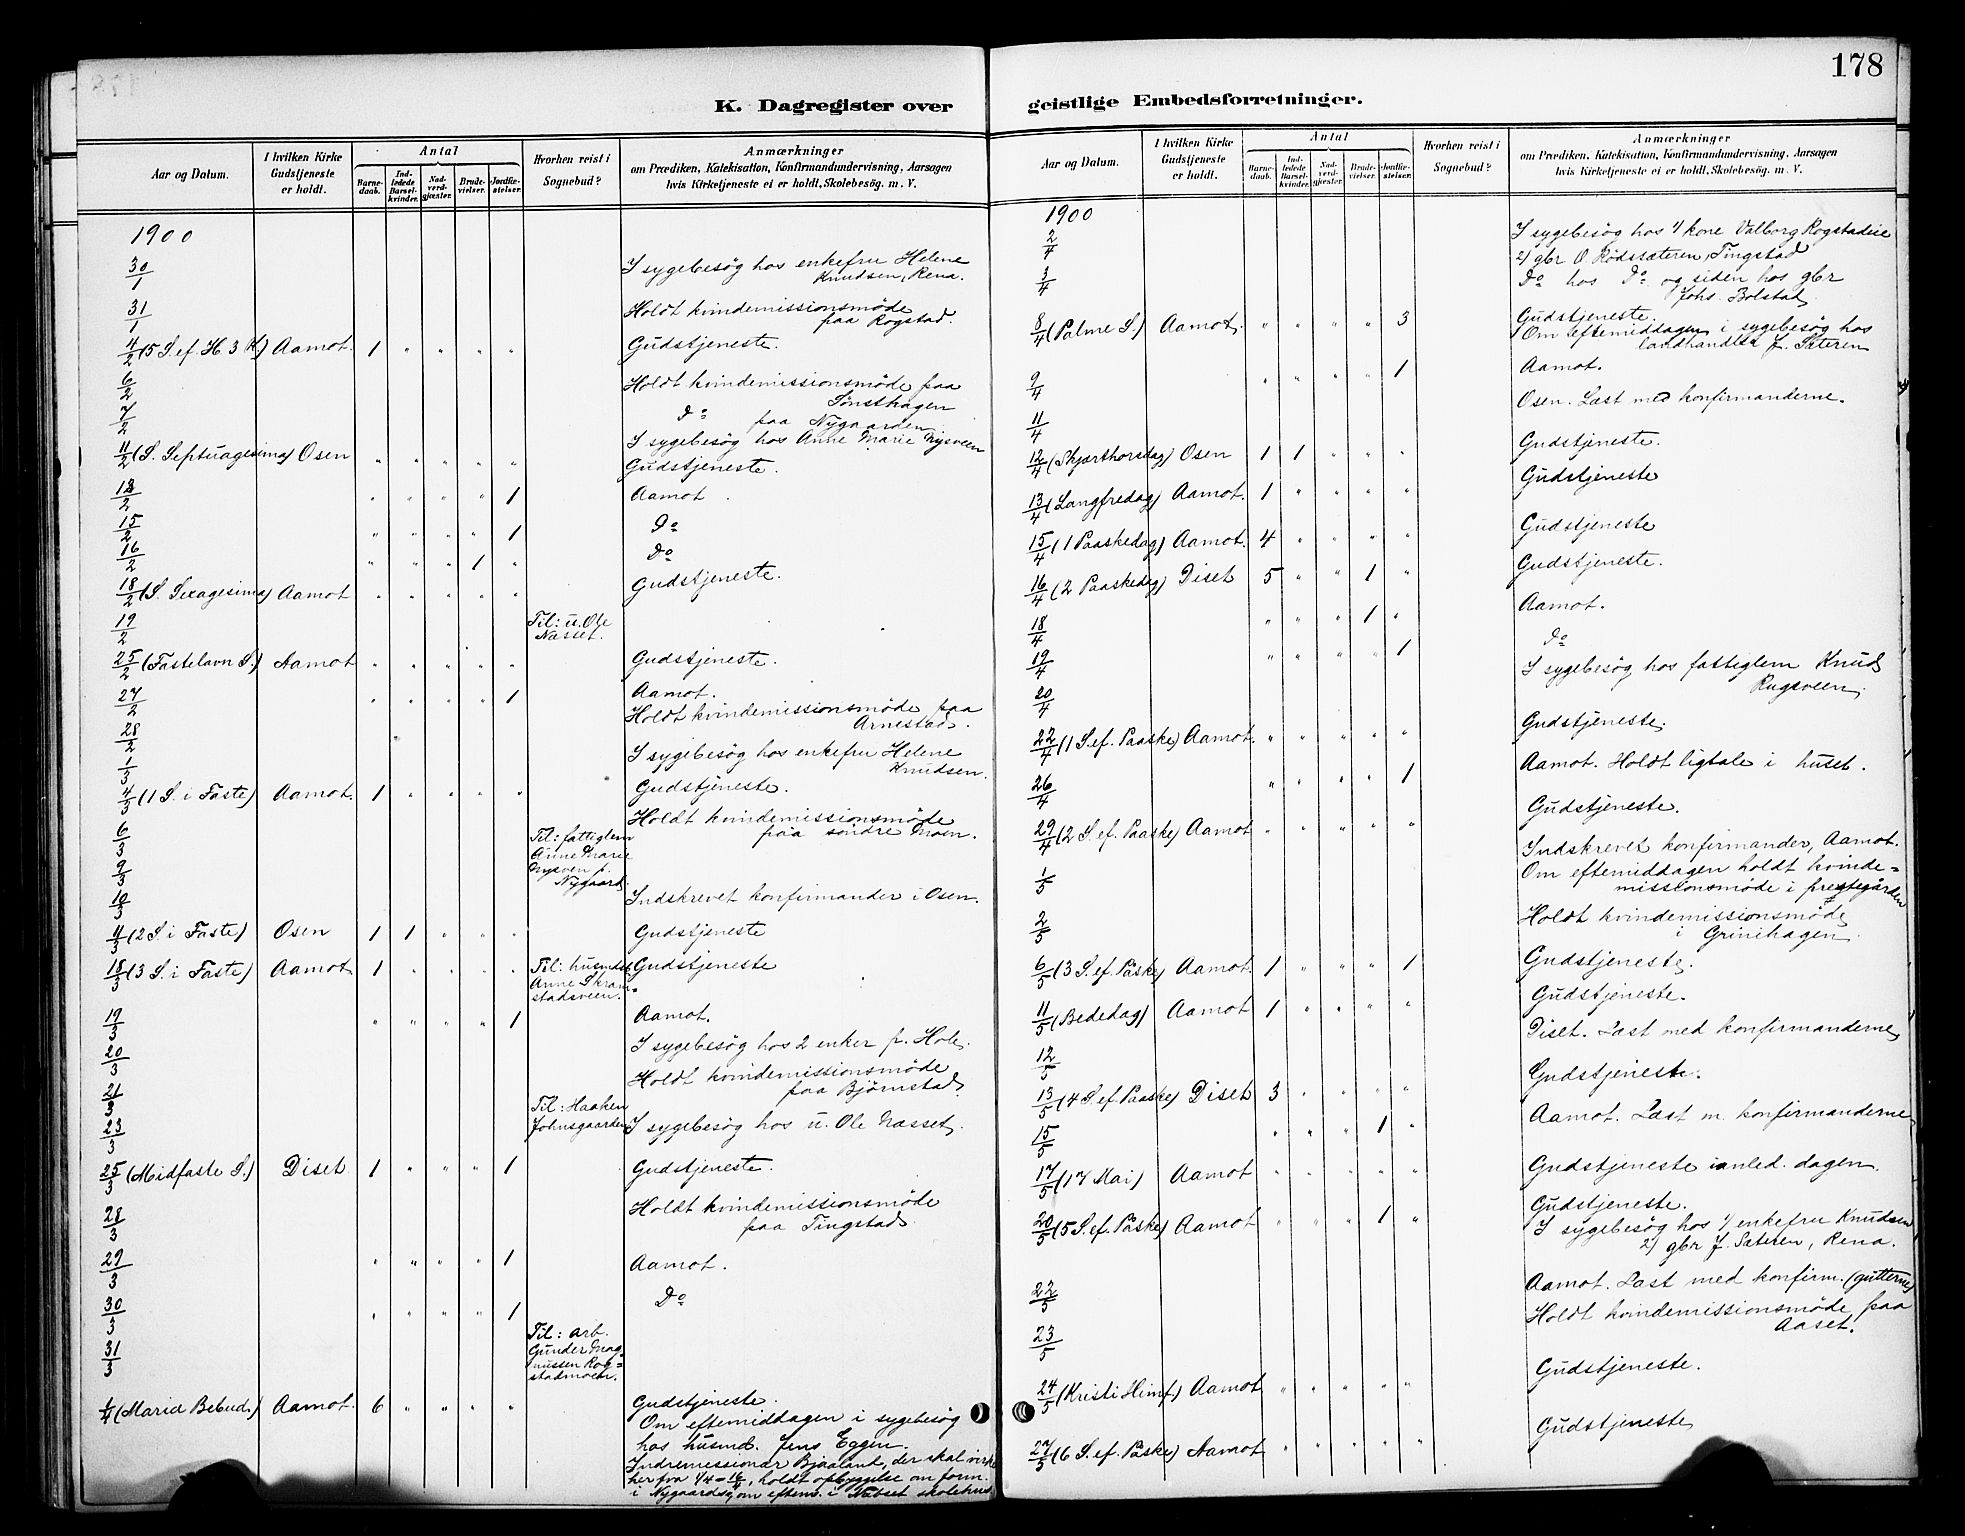 178
K. Dagregister over geistlige Embedsforretninger.
Aar og Datum. I hvilken Kirke Gudstjeneste er holdt. Antal Barnedaab. Indledede Barselkvinder. Nadverdgjester. Brudevielser. Jordfæstelser. Hvorhen reist i Sognebud? Anmærkninger om Prædiken, Katekisation, Konfirmandundervisning, Aarsagen hvis Kirketjeneste ei er holdt, Skolebesøg. m. V.
1900
30/1 I sygebesög hos enkefru Helene
Knudsen, Rena.
31/1 Holdt kvindemissionsmöde
paa Rogstad.
4/2 (5 S. ef. H. 3 K.) Aamot. 1 " " " " Gudstjeneste.
6/2 Holdt kvindemissionsmöde paa
Sönsthagen
7/2 Do paa Nygaarden
I sygebesög hos Anne Marie Nysveen
11/2 (S. Septuagesima) Osen " " " " " Gudstjeneste.
12/2 " " " " 1 Aamot.
15/2 " " " " 1 Do
16/2 " " " 1 " Do
18/2 (S. Sexagesima) Aamot " " " " " Gudstjeneste.
19/2 Til: u. Ole
Næsset.
25/2 (Fastelavn S.) Aamot " " " " " Gudstjeneste.
27/2 " " " " 1 Aamot.
Holdt kvindemissionsmöde paa
28/2 Arnestad.
1/3 I sygebesög hos enkefru Helene
Knudsen.
4/3 (1 S. i Faste) Aamot. 1 " " " " Gudstjeneste.
6/3 Holdt kvindemissionsmöde
paa söndre Moen.
9/3 Til: fattiglem
Anne Marie
Nysven p.
Nygaard.
10/3 Indskrevet konfirmander i Osen.
11/3 (2 S. i Faste) Osen 1 1 " " " Gudstjeneste
18/3 (3 S. i Faste) Aamot 1 " " " " Til: Gudstjeneste
Anne Skram=
stadsveen.
19/3 " " " " 1 Aamot.
20/3 I sygebesög hos 2 enker p. Hole.
21/3 Holdt kvindemissionsmöde
paa Björnstad.
23/3 Til: Haaken
Johnsgaarden I sygebesög hos u. Ole Næsset.
25/3 (Midfaste S.) Diset 1 " " " 1 Gudstjeneste.
28/3 Holdt kvindemissionsmöde
paa Tingstad.
29/3 " " " " 1 Aamot.
30/3 " " " " 1 Do
31/3 Til: arb.
Gunder Mag=
nussen Rog=
stadmoen.
1/4 (Mariæ Bebud.) Aamot. 6 " " " " Gudstjeneste.
Om eftemiddagen i sygebesög
hos husmd. Jens Eggen.
Indremissionær Bjaaland, der skal virke
her fra 1/4 – 16/4, holdt opbyggelse om form.
i Nygaards, om eftem. i Næbset skolehus.
1900
2/4 I sygebesög hos 1) kone Valborg Rogstadeie
2) gbr O. Rödsæteren, Tingstad
3/4 Do hos Do og siden hos gbr
Johs. Bolstad.
8/4 (Palme S.) Aamot. " " " " 3 Gudstjeneste.
Om eftemiddagen i sygebesög hos
landhandler J. Sæteren
9/4 " " " " 1 Aamot.
11/4 Osen. Læst med konfirmanderne.
12/4 (Skjærthorsdag) Osen 1 1 " " " Gudstjeneste.
13/4 (Langfredag) Aamot. 1 " " " " Gudstjeneste
15/4 (1 Paaskedag) Aamot. 4 " " " " Gudstjeneste
16/4 (2 Paaskedag) Diset 5 " " 1 " Gudstjeneste.
18/4 " " " 1 " Aamot.
19/4 " " " " 1 Do
20/4 I sygebesög hos fattiglem Knud
Rugsveen.
22/4 (1 S. ef. Paaske) Aamot. " " " " " Gudstjeneste.
26/4 " " " " 1 Aamot. Holdt ligtale i huset.
29/4 (2 S. ef. Paaske) Aamot " " " " " Gudstjeneste.
1/5 Indskrevet konfirmander, Aamot.
Om eftemiddagen holdt kvinde=
missionsmöde i prestegården
2/5 Holdt kvindemissionsmöde
i Grinihagen.
6/5 (3 S. ef. Påske) Aamot. 1 " " " 1 Gudstjeneste.
11/5 (Bededag) Aamot 1 " " " " Gudstjeneste.
12/5 Diset. Læst med konfirmanderne
13/5 (4 S. ef. Paaske) Diset 3 " " " " Gudstjeneste.
15/5 " " " 1 " Aamot. Læst m. konfirmanderne
17/5 (17 Mai) Aamot " " " " " Gudstjeneste i anled. dagen.
20/5 (5 S. ef. Påske) Aamot " " " 1 " Gudstjeneste.
I sygebesög hos 1) enkefru Knudsen
2) gbr J. Sæteren, Rena.
22/5 Aamot. Læst med konfirm. (gutterne)
23/5 Holdt kvindemissionsmöde paa
Aaset.
24/5 (Kristi Himf.) Aamot " " " " " Gudstjeneste.
27/5 (6 S. ef. Påske) Aamot " " " " " Gudstjeneste